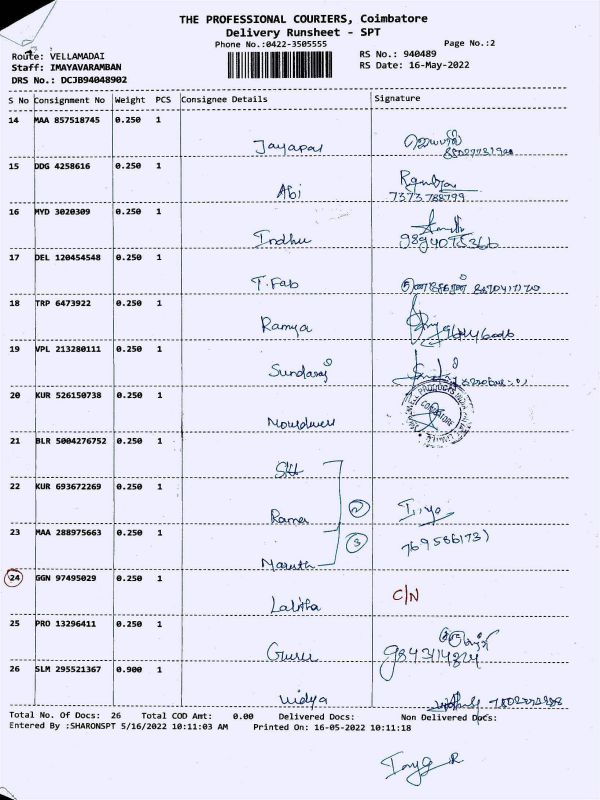 THE PROFESSIONAL COURIERS, Coimbatore
Delivery Runsheet - SPT
Phone No.:0422-3505555 Page No.:2
Route: VELLAMADAI RS No.: 940489
Staff: IMAYAVARAMBAN RS Date: 16-May-2022
DRS No.: DCJB94048902
S No Consignment No Weight PCS Consignee Details Signature
14 MAA 857518745 0.250 1
Jayapal
15 DDG 4258616 0.250 1
Abi
7373 788799
16 MYD 3020309 0.250 1
Indhu
17 DEL 120454548 0.250 1
T. Fab
18 TRP 6473922 0.250 1
Ramya
19 VPL 213280111 0.250 1
Sundaraj
20 KUR 526150738 0.250 1
21 BLR 5004276752 0.250 1
22 KUR 693672269 0.250 1
23 MAA 288975663 0.250 1
3
24 GGN 97495029 0.250 1
Lalitha C/N
25 PRO 13296411 0.250 1
Guru
26 SLM 295521367 0.900 1
Vidya
Total No. Of Docs: 26 Total COD Amt: 0.00 Delivered Docs: Non Delivered Docs:
Entered By :SHARONSPT 5/16/2022 10:11:03 AM Printed On: 16-05-2022 10:11:18